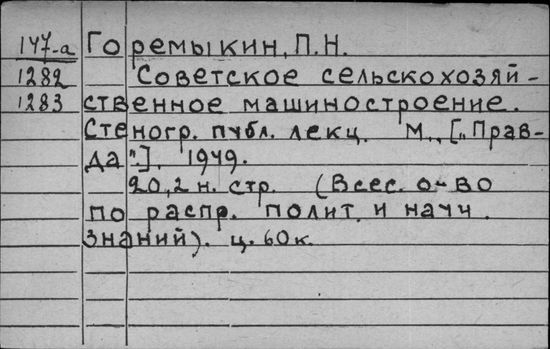 147-а Горемыкин, П.Н.
1282 Советское сельскохозяй-
1283 ственное машиностроение.
Стеногр. публ. лекц. М., [„Прав-
да".], 1949.
20,2 н. стр. (Всес. о-во
по распр. полит. и научн.
знаний). ц. 60 к.